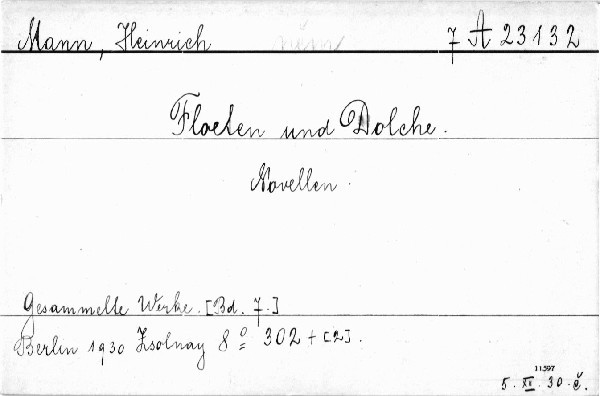 Mann, Heinrich 7 A 23132
Floeten und Dolche.
Novellen.
Gesammelte Werke. [Bd. 7.]
Berlin 1930 Zsolnay 8° 302 + [2].
11597
5. XI. 30. č.